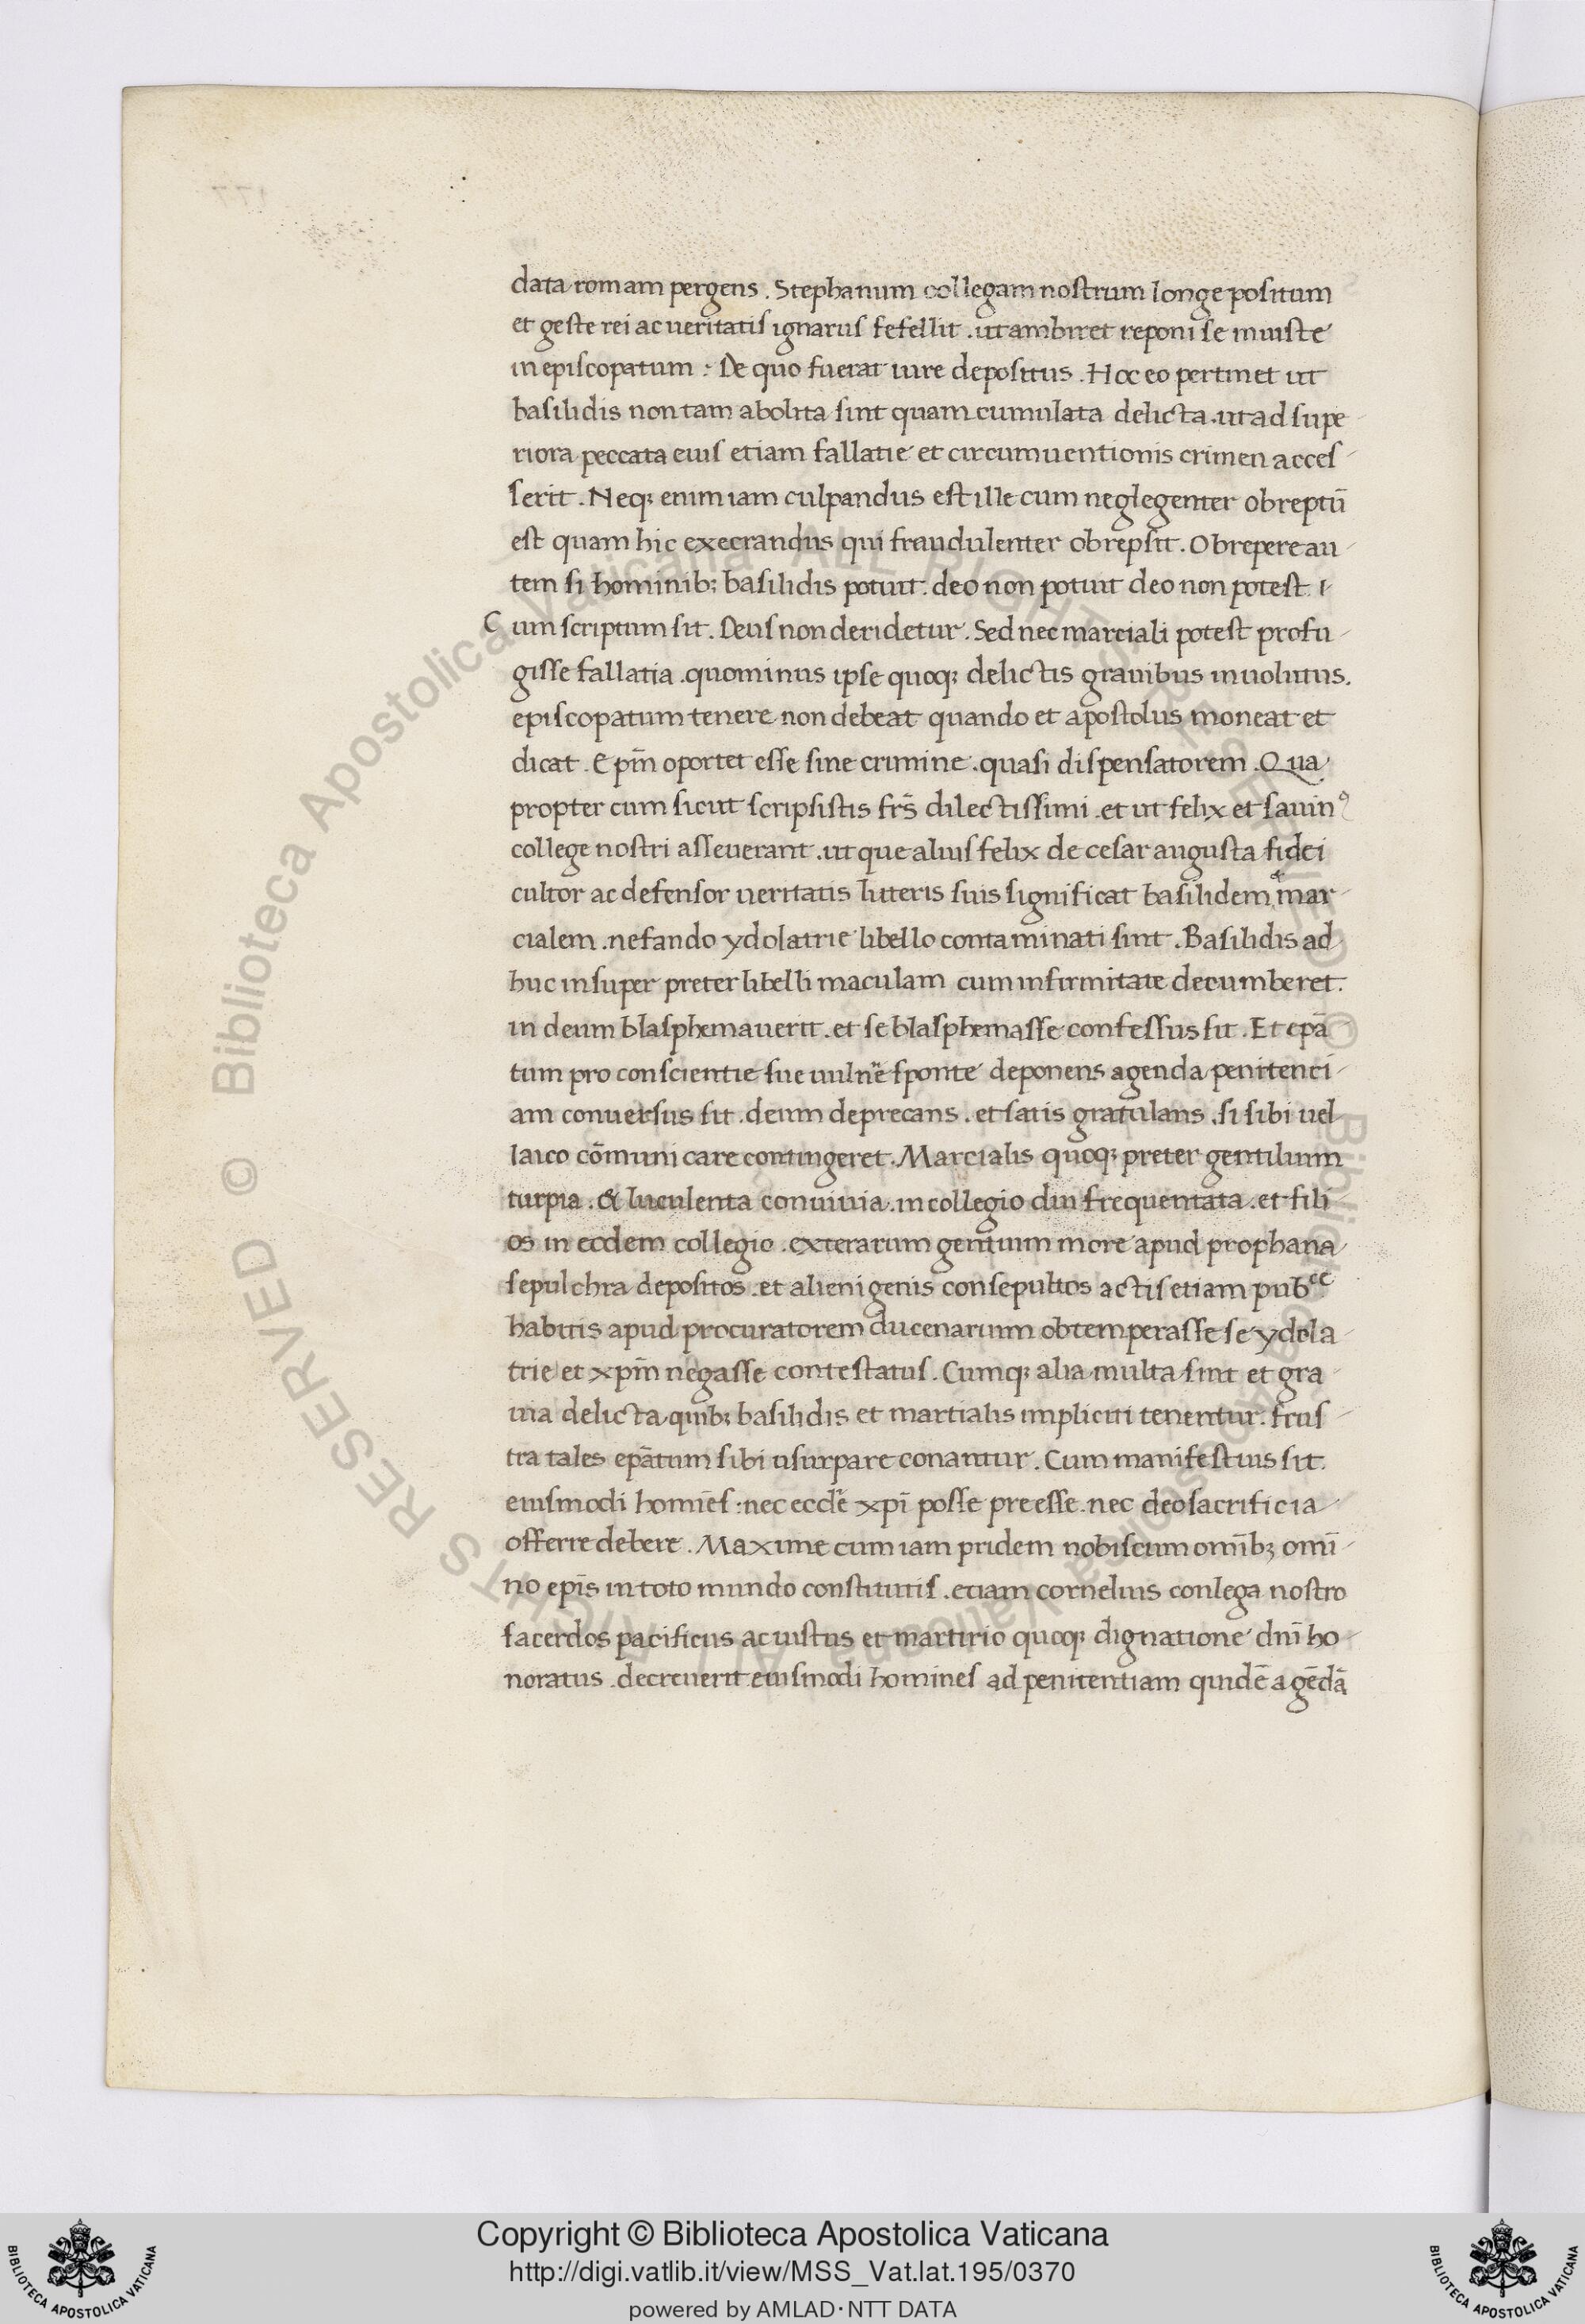 data romam pergens . Stephanum collegam nostrum longe positum
et geste rei ac ueritatis ignarus fefellit . ut ambiret reponi se iniuste
in episcopatum : De quo fuerat iure depositus . Hoc eo pertinet ut
basilidis non tam abolita sint quam cumulata delicta . ut ad supe
riora peccata eius etiam fallatie et circumuentionis crimen acces
serit . Neq; enim iam culpandus est ille cum neglegenter obreptū
est quam hic execrandus qui fraudulenter obrepsit . Obrepere au
tem si hominib; basilidis potuit . deo non potuit deo non potest
Cum scriptum sit . Deus non deridetur . Sed nec marciali potest profu
gisse fallatia . quominus ipse quoq; delictis grauibus inuolutus .
episcopatum tenere non debeat quando et apostolus moneat et
dicat . Epm̄ oportet esse sine crimine . quasi dispensatorem . Qua
propter cum sicut scripsistis frs̄ dilectissimi . et ut felix et sauinꝰ
college nostri asseuerant . utque alius felix de cesar augusta fidei
cultor ac defensor ueritatis litteris suis significat basilidem & mar
cialem . nefando ydolatrie libello contaminati sint . Basilidis ad
huc insuper preter libelli maculam cum infirmitate decumberet .
in deum blasphemauerit . et se blasphemasse confessus sit . Et epā
tum pro conscientie sue uulnē sponte deponens agenda penitenci
am conuersus sit . deum deprecans . et satis gratulans . si sibi uel
laico cōmunicare contingeret . Marcialis quoq; preter gentilium
turpia . & luculenta conuiuia . in collegio diu frequentata . et fili
os in eodem collegio . exterarum gentium more apud prophana
sepulchra depositos . et alienigenis consepultos actis etiam pubᶜᶜ
habitis apud procuratorem ducenarium obtemperasse se ydola
trie et xpm̄ negasse contestatus . Cumq; alia multa sint et gra
uia delicta quib; basilidis et martialis impliciti tenentur . frus
tra tales epātum sibi usurpare conantur . Cum manifestius sit
eiusmodi homiēs : nec eccl̄e xpī posse preesse . nec deo sacrificia
offerre debere . Maxime cum iam pridem nobiscum omīb; omī
no epīs in toto mundo constitutis . etiam cornelius conlega nostro
sacerdos pacificus ac iustus et martirio quoq; dignatione dnī ho
noratus . decreuerit eiusmodi homines ad penitentiam quidē agēdā
© Biblioteca Apostolica Vaticana ALL RIGHTS RESERVED
© Biblioteca Apostolica Vaticana ALL RIGHTS RESERVED
Copyright © Biblioteca Apostolica Vaticana
http://digi.vatlib.it/view/MSS_Vat.lat.195/0370
powered by AMLAD·NTT DATA
BIBLIOTECA APOSTOLICA VATICANA
BIBLIOTECA APOSTOLICA VATICANA